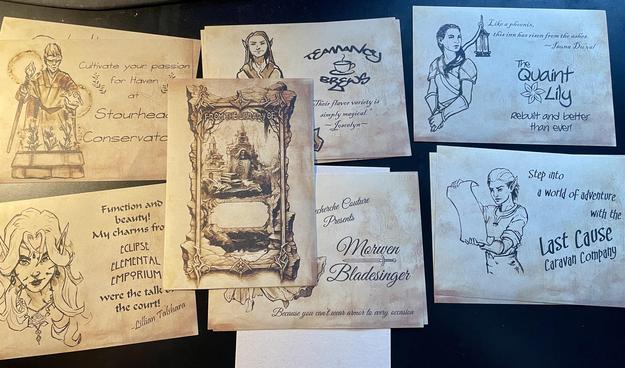 Cultivate your passion
for Haven
at
Stourhead
Conservato
TEAMANCY
BREWS
Their flavor variety is
simply magical.
~Joscelyn~
Like a phoenix,
this inn has risen from the ashes.
The
Quaint
Lily
Rebuilt and better
than ever!
FROM THE LIBRARY OF
Function and
beauty!
My charms fro
ECLIPSE
ELEMENTAL
EMPORIUM
were the talk of
the court!
-Lillian Talshara
cherche Couture
Presents
Morwen
Bladesinger
Because you can't wear armor to every occasion
Step into
a world of adventure
with the
Last Cause
Caravan Company